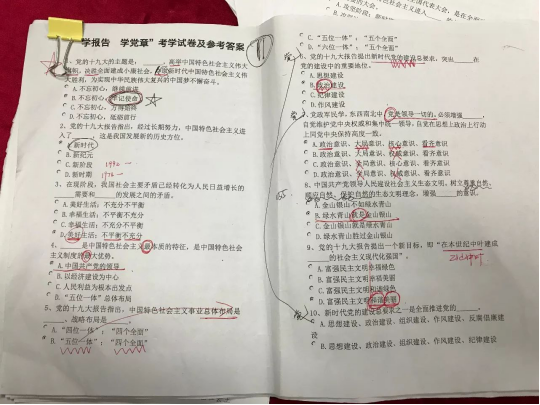 学报告 学党章”考学试卷及参考答案
1、党的十九大的主题是：______，高举中国特色社会主义伟大
旗帜，决胜全面建成小康社会，夺取新时代中国特色社会主义伟
大胜利，为实现中华民族伟大复兴的中国梦不懈奋斗。
A.不忘初心，继续前进
B.不忘初心，牢记使命
C.不忘初心，方得始终
D.不忘初心，砥砺前行
2、党的十九大报告指出，经过长期努力，中国特色社会主义进
入了______，这是我国发展新的历史方位。
A.新时代
B.新纪元
C.新阶段
D.新时期
3、在现阶段，我国社会主要矛盾已经转化为人民日益增长的
______需要和______的发展之间的矛盾。
A.美好生活；不充分不平衡
B.幸福生活；不平衡不充分
C.幸福生活；不充分不平衡
D.美好生活；不平衡不充分
4、______是中国特色社会主义最本质的特征，是中国特色社会
主义制度的最大优势。
A.中国共产党的领导
B.以经济建设为中心
C.人民利益为根本出发点
D.“五位一体”总体布局
5、党的十九大报告指出，中国特色社会主义事业总体布局是
______，战略布局是______。
A.“四位一体”；“四个全面”
B.“五位一体”；“四个全面”
C.“五位一体”；“五个全面”
D.“六位一体”；“五个全面”
6、党的十九大报告提出新时代党的建设总要求，突出______在
党的建设中的重要地位。
A.思想建设
B.政治建设
C.纪律建设
D.作风建设
7、党政军民学，东西南北中，党是领导一切的。必须增强______，
自觉维护党中央权威和集中统一领导，自觉在思想上政治上行动
上同党中央保持高度一致。
A.政治意识、大局意识、核心意识、看齐意识
8、中国共产党领导人民建设社会主义生态文明。树立尊重自然、
顺应自然、保护自然的生态文明理念，增强______的意识。
A.金山银山不如绿水青山
B.绿水青山就是金山银山
C.金山银山就是绿水青山
D.绿水青山胜过金山银山
9、党的十九大报告提出一个新目标，即“在本世纪中叶建成
______的社会主义现代化强国”。
A.富强民主文明幸福绿色
B.富强民主文明幸福美丽
C.富强民主文明和谐绿色
D.富强民主文明和谐美丽
10、新时代党的建设总要求之一是全面推进党的______。
A.思想建设、政治建设、组织建设、作风建设、反腐倡廉建
设
B.思想建设、政治建设、组织建设、作风建设、纪律建设